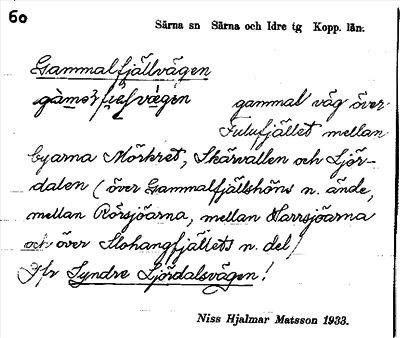 60
Särna sn Särna och Idre tg Kopp. län.
Gammalfjällvägen
gammal väg över
Fulufjället mellan
byarna Mörkret, Skärvallen och Ljör-
dalen (över Gammalfjällshöns n. ände,
mellan Rörsjöarna, mellan Harrsjöarna
och över Slohangfjällets n. del)
Jfr Syndre Ljördalsvägen!
Niss Hjalmar Matsson 1933.